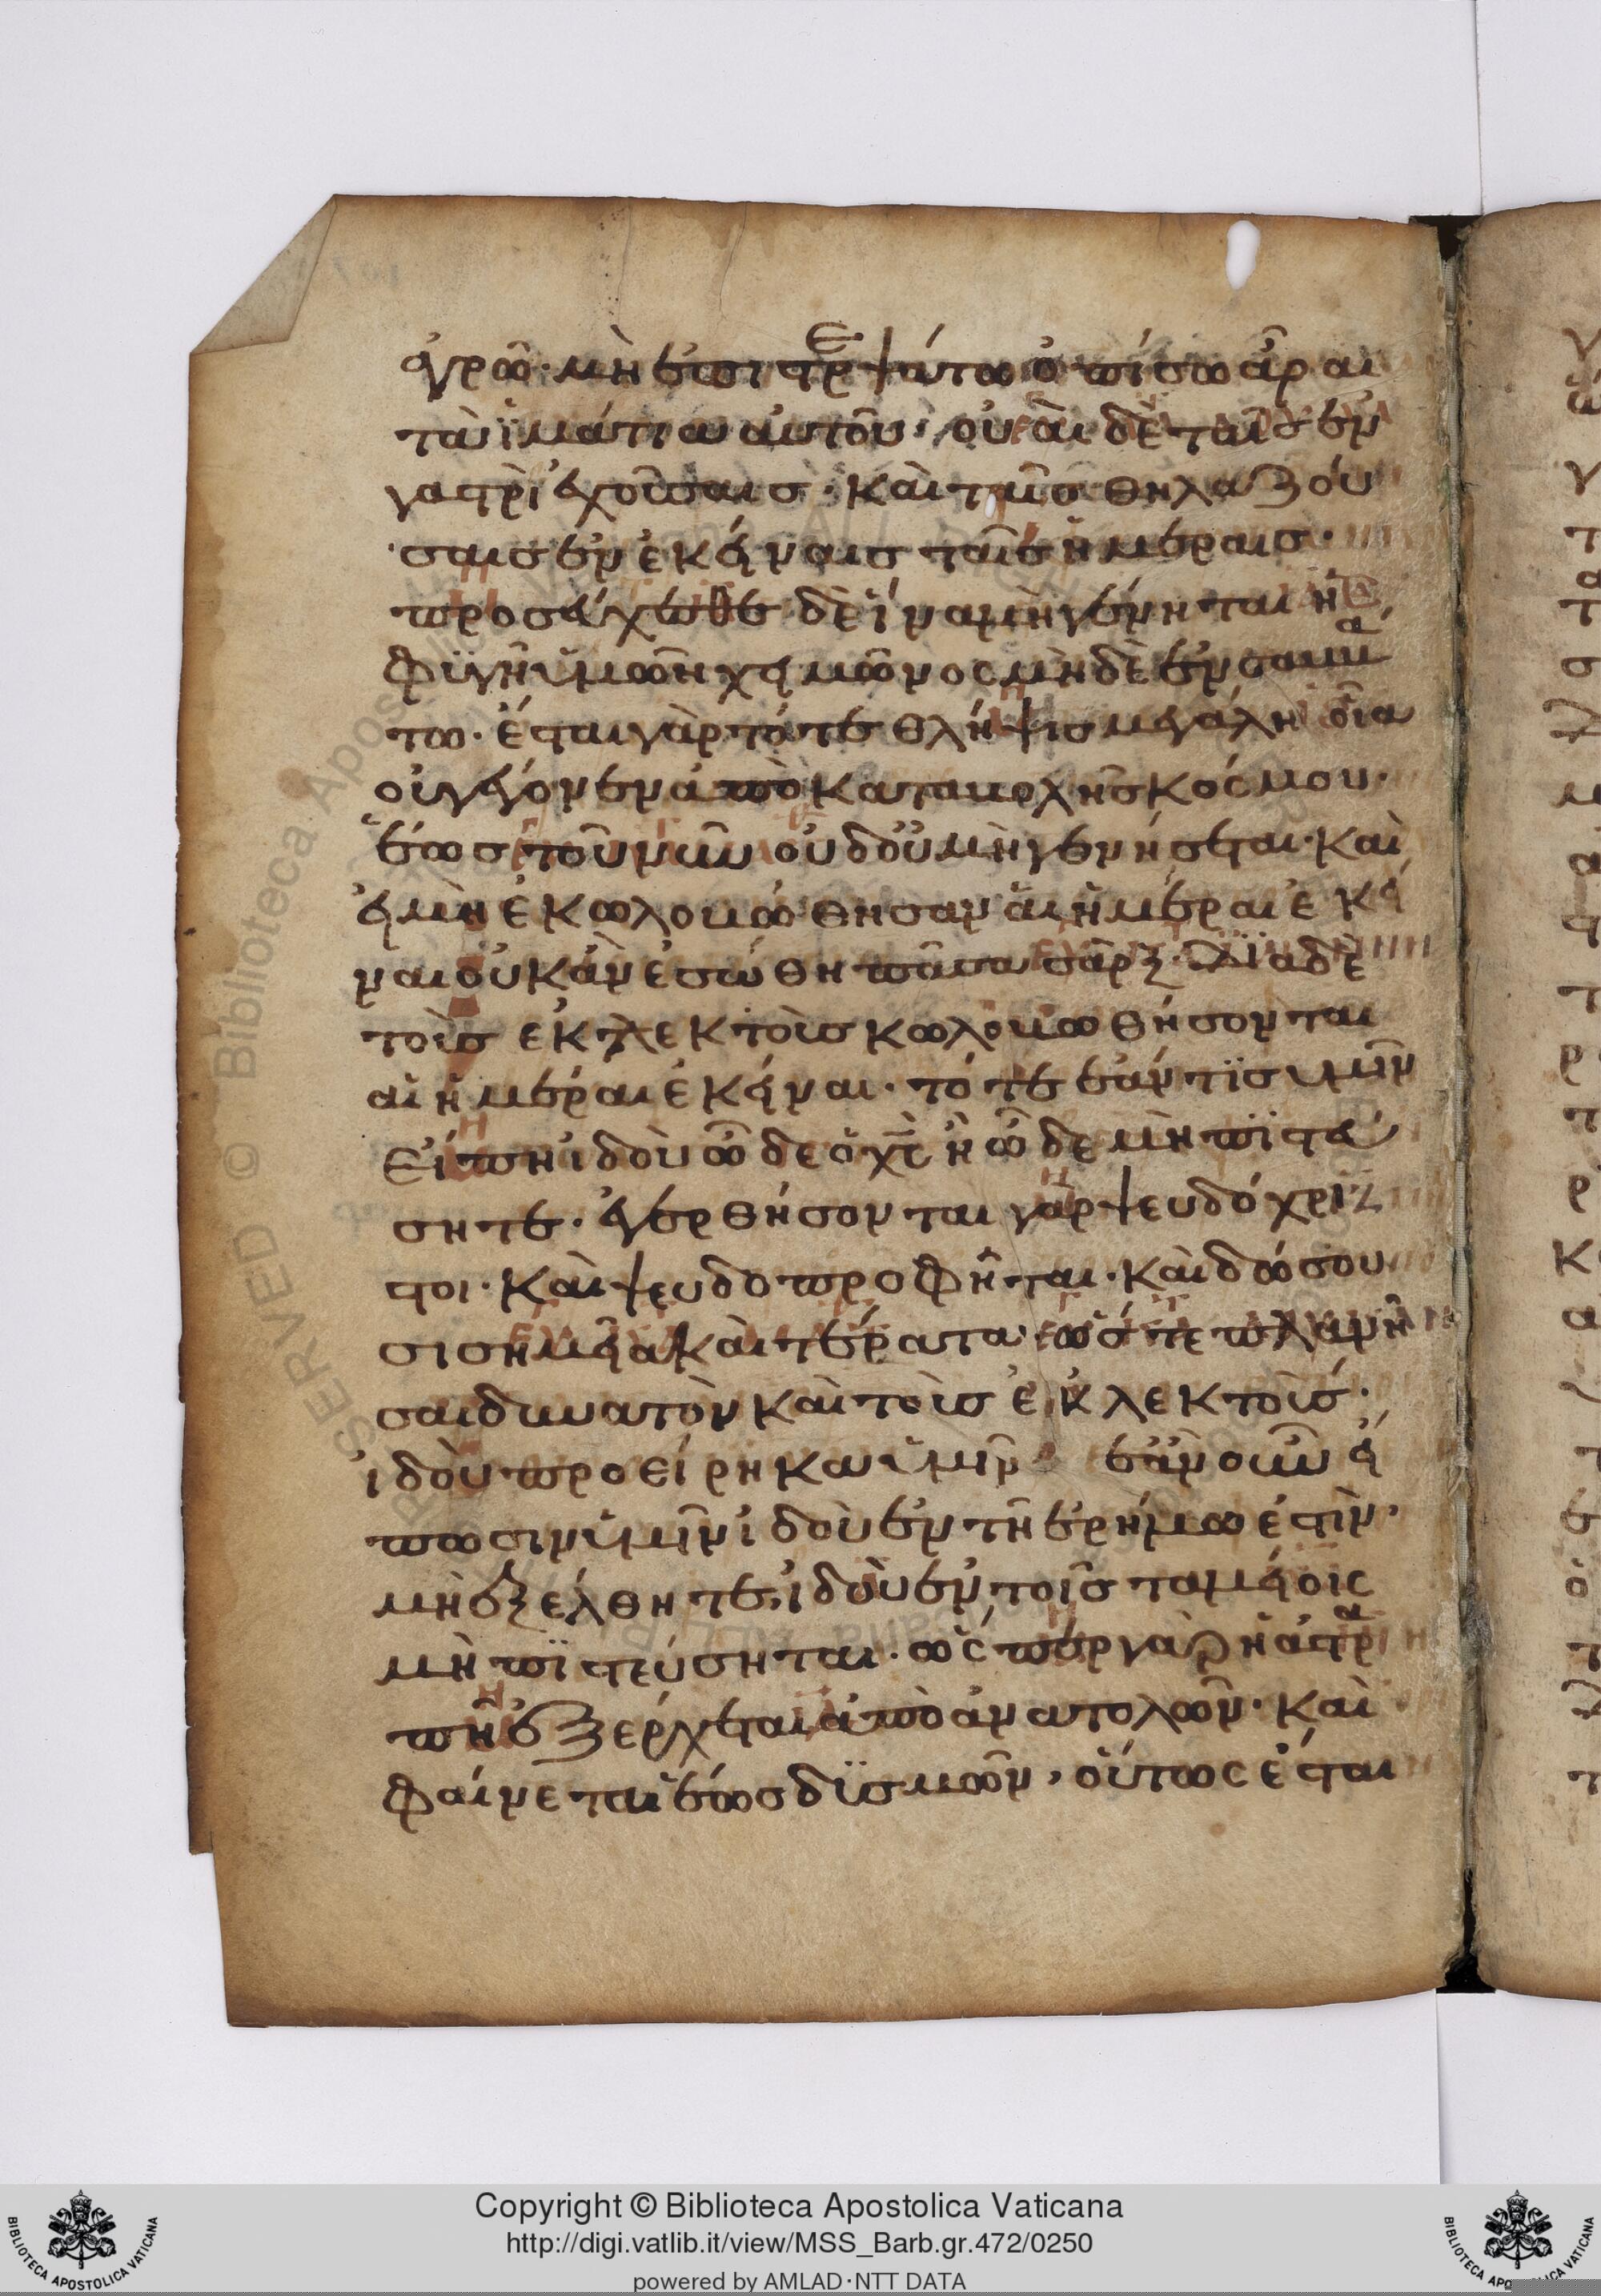 ἀγρῶ· μὴ ἐπιστρεψάτω ὀπίσω ἆραι
τὰ ἱμάτια αὐτοῦ· οὐαὶ δὲ ταῖς ἐν
γαστρὶ ἐχούσαις· καὶ ταῖς θηλαζού
σαις ἐν ἐκείναις ταῖς ἡμέραις·
προσεύχεσθε δὲ ἵνα μὴ γένηται ἡ
φϋγῆ ὑμῶ͂ν χειμῶνος μὴδὲ ἐν σαββά
τω· ἔσται γὰρ τότε θλήψις μεγάλη οἵα
οὐ γέγονεν ἀπὸ καταβολῆς κόσμου·
ἕως τοῦ νῦν οὐδ οὐ μὴ γένήσεται· καὶ
εἰ μὴ ἐκωλοβώθησαν αἱ ἡμέραι ἐκεῖ
ναι οὐκ ἀν ἐσώθη πᾶσα σὰρξ· δϊα δὲ
τοὺς εκλεκτοὺς κωλοβωθήσονται
αἱ ἡμέραι ἐκείναι· τότε ἐάν τϊς ὑμῖν
εἴπη ἰδοὺ ὧδε ὁ χς ἢ ὧδε μὴ πϊστεύ
σητε· ἐγερθήσονται γὰρ ψευδόχρισ
τοι· καὶ ψευδοπροφῆται· καὶ δώσου
σι σημεῖα καὶ τέρατα· ὥστε πλανῆ
σαι δυνατὸν καὶ τοὺς ἐκλεκτούς·
ἰδοὺ προείρηκα ὑμῖν ἐὰν οὖν εἴ
πωσιν ὑμῖν ἰδοὺ ἐν τῆ ἐρήμω ἐστὶν,
μὴ ἐξέλθητε, ἰδοὺ ἐν τοῖς ταμείοις
μὴ πϊστεύσηται· ὥσπερ γὰρ ἡ ἀστρα
πῆ ἐξέρχεται ἀπὸ ἀνατολῶν· καὶ
φαίνεται ἕως δϋσμῶν, οὕτως ἔσται
Copyright © Biblioteca Apostolica Vaticana
http://digi.vatlib.it/view/MSS_Barb.gr.472/0250
powered by AMLAD·NTT DATA
BIBLIOTECA APOSTOLICA VATICANA
BIBLIOTECA APOSTOLICA VATICANA